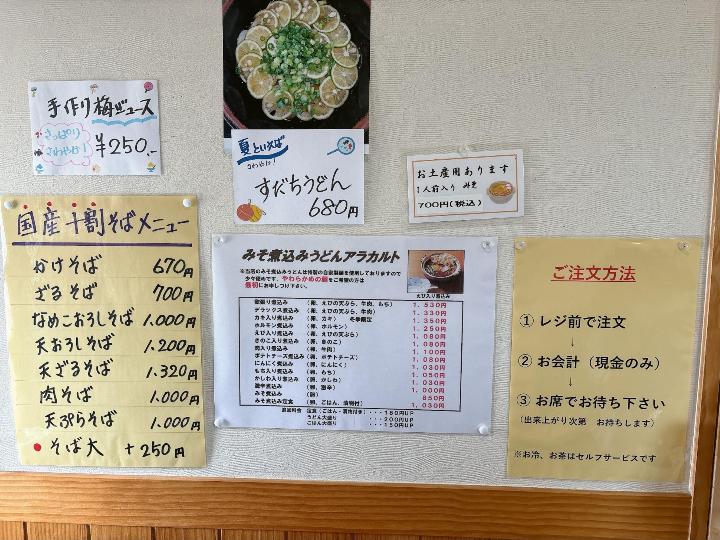 手作り梅ジュース
さっぱり
さわやか!
¥250.-
夏といえば
さわやか!
すだちうどん
680円
お土産用あります
1人前入り みそ
700円(税込)
国産十割そばメニュー
かけそば 670円
ざるそば 700円
なめこおろしそば 1.000円
天おろしそば 1.200円
天ざるそば 1.320円
肉そば 1.000円
天ぷらそば 1.000円
そば大 +250円
みそ煮込みうどんアラカルト
※当店のみそ煮込みうどんは特製の自家製麺を使用しておりますので
少々硬めです。やわらかめの麺をご希望の方は
最初にお申しつけ下さい。
えび入り煮込み
(卵、えびの天ぷら、牛肉、もち) 1.530円
デラックス煮込み (卵、えびの天ぷら、牛肉) 1.330円
カキ入り煮込み (卵、カキ) 冬季限定 1.350円
ホルモン煮込み (卵、ホルモン) 1.250円
えび入り煮込み (卵、えびの天ぷら) 1.080円
きのこ入り煮込み (卵、きのこ) 1.080円
肉入り煮込み (卵、牛肉) 1.100円
ポテトチーズ煮込み (卵、ポテトチーズ) 1.080円
にんにく煮込み (卵、にんにく) 1.030円
もち入り煮込み (卵、もち) 1.050円
かしわ入り煮込み (卵、かしわ) 1.030円
激辛煮込み (卵、激辛) 1.000円
みそ煮込み (卵) 850円
みそ煮込み定食 (卵、ごはん、漬物付) 1.030円
追加料金 定食(ごはん・漬物付き)・・・180円UP
うどん大盛り ・・・200円UP
ごはん大盛り ・・・150円UP
ご注文方法
① レジ前で注文
↓
② お会計(現金のみ)
↓
③ お席でお待ち下さい
(出来上がり次第 お持ちします)
※お冷、お茶はセルフサービスです